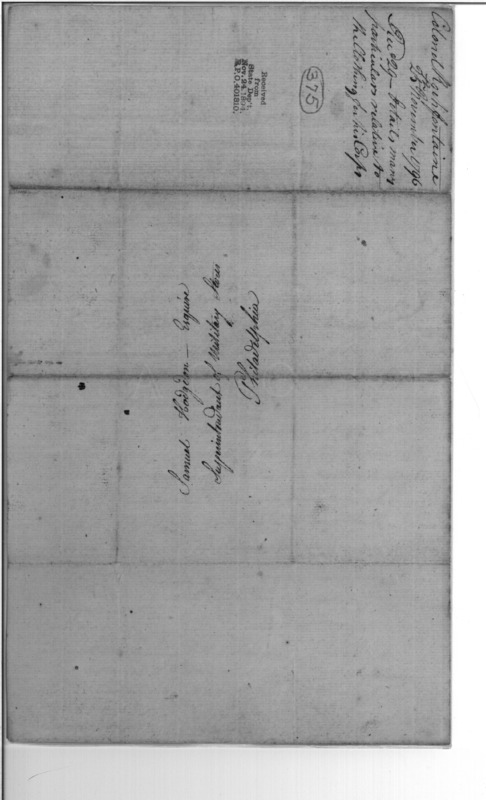 Colonel Rochfontaine
15 November 1796
particulars relative to
the Clothing for his Corps
375
Received
from
State Dep't.
Nov. 24, 1894
R.P.O. 401810.
Samuel Hodgdon — Esquire
Superintendant of Military Stores
Philadelphia